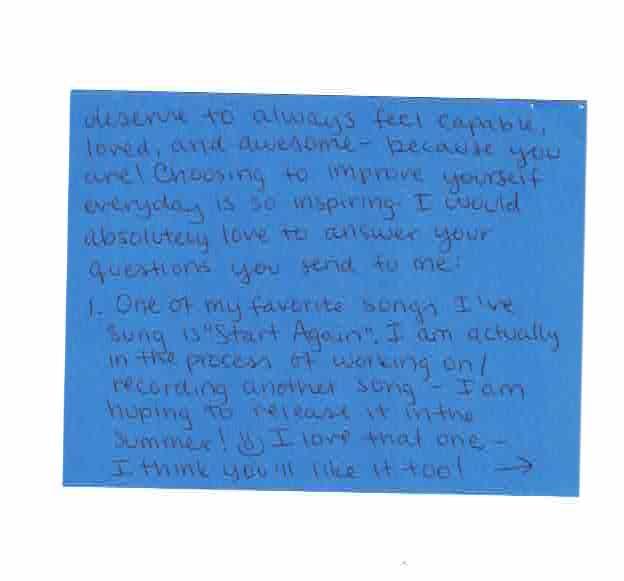 deserve to always feel capable,
loved, and awesome - because you
are! Choosing to improve yourself
everyday is so inspiring. I would
absolutely love to answer your
questions you send to me:
1. One of my favorite songs I've
sung is "Start Again". I am actually
in the process of working on/
recording another song - I am
hoping to release it in the
summer! ☺ I love that one -
I think you'll like it too! →